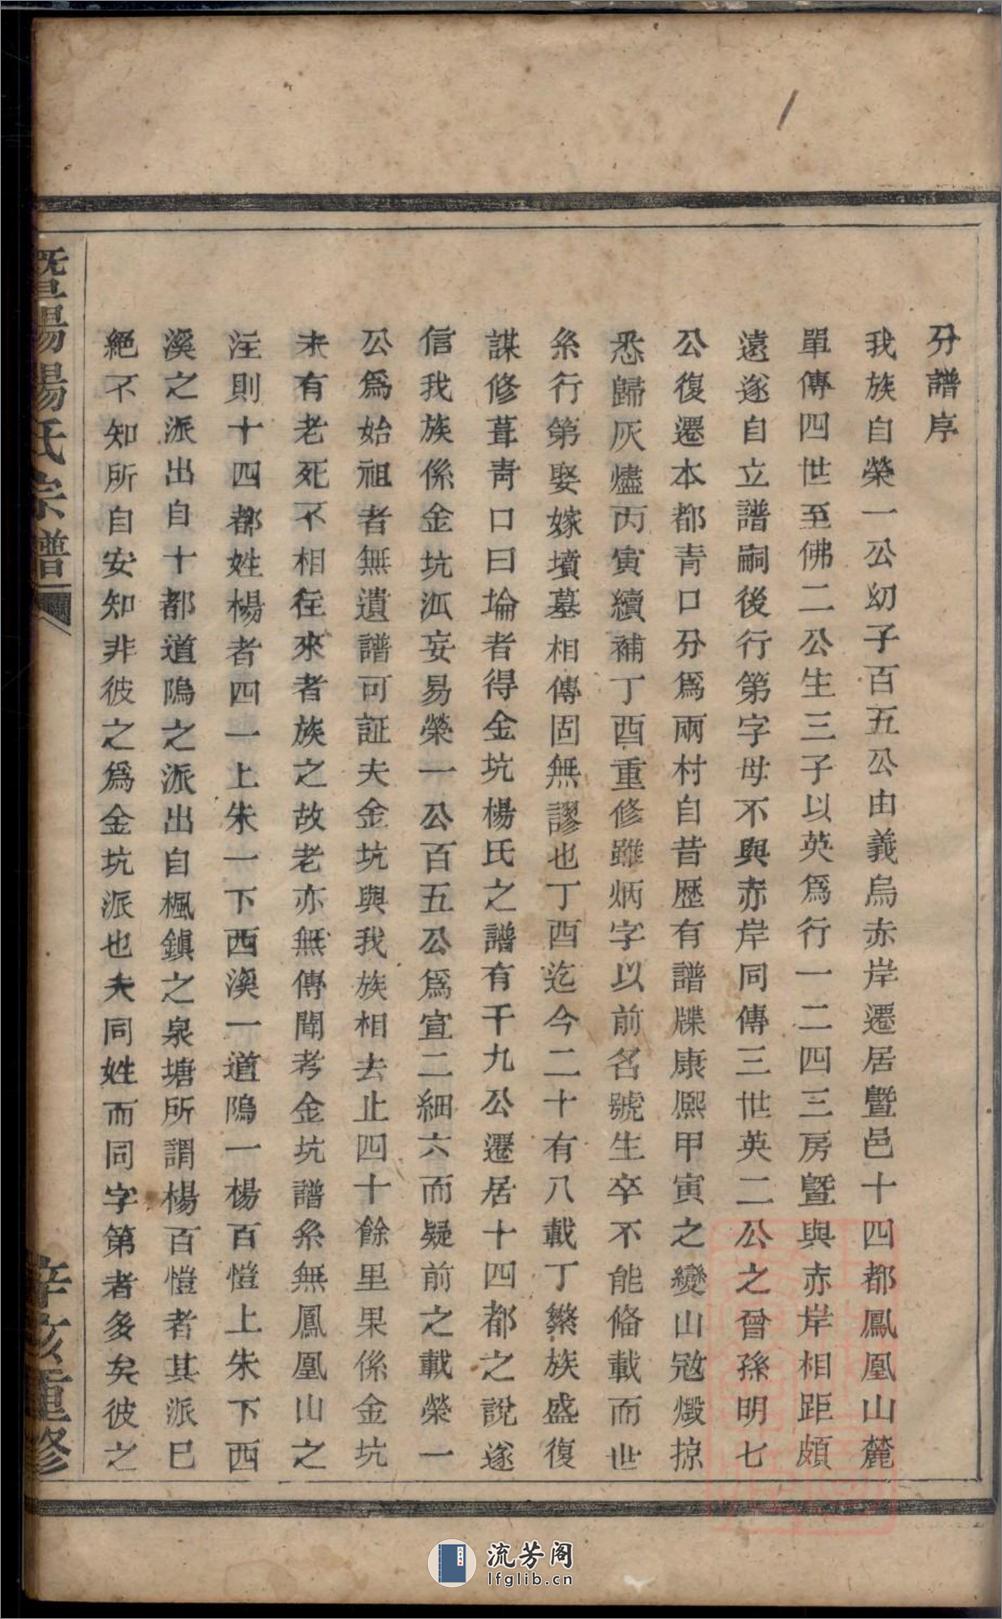 分譜序
我族自榮一公幼子百五公由義烏赤岸遷居暨邑十四都鳳凰山麓
單傳四世至佛二公生三子以英爲行一二四三房暨與赤岸相距頗
遠遂自立譜嗣後行第字母不與赤岸同傳三世英二公之曾孫明七
公復遷本都青口分爲兩村自昔歷有譜牒康熙甲寅之變山寇燬掠
悉歸灰燼丙寅續補丁酉重修雖炳字以前名號生卒不能俻載而世
系行第娶嫁墳墓相傳固無謬也丁酉迄今二十有八載丁繁族盛復
謀修葺青口曰埨者得金坑楊氏之譜有千九公遷居十四都之說遂
信我族係金坑泒妄易榮一公百五公爲宣二細六而疑前之載榮一
公爲始祖者無遺譜可証夫金坑與我族相去止四十餘里果係金坑
未有老死不相往來者族之故老亦無傳聞考金坑譜系無鳳凰山之
注則十四都姓楊者四一上朱一下西溪一道隖一楊百愷上朱下西
溪之派出自十都道隖之派出自楓鎮之泉塘所謂楊百愷者其派巳
絕不知所自安知非彼之爲金坑派也夫同姓而同字第者多矣彼之
暨陽楊氏宗譜
辛亥重修
流芳阁
lfglib.cn